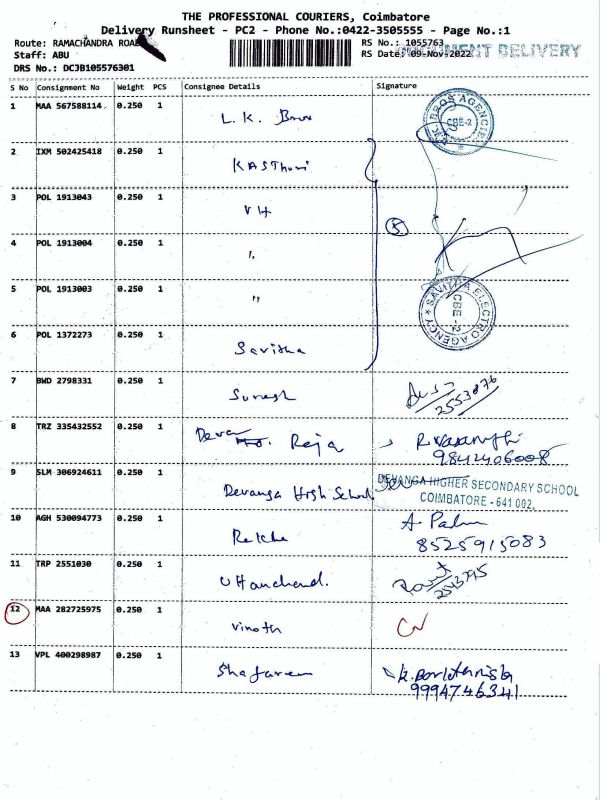 THE PROFESSIONAL COURIERS, Coimbatore
Delivery Runsheet - PC2 - Phone No.:0422-3505555 - Page No.:1
Route: RAMACHANDRA ROAD
RS No.: 1055763
DOCUMENT DELIVERY
Staff: ABU
RS Date: 09-Nov-2022
DRS No.: DCJB105576301
S No Consignment No Weight PCS Consignee Details Signature
1 MAA 567588114 0.250 1 L.K. Bros
AGENCIES
CBE-2
2 IXM 502425418 0.250 1 KASThuri
3 POL 1913043 0.250 1 VH
5
4 POL 1913004 0.250 1 "
5 POL 1913003 0.250 1 "
SAVITHA ELECTRO AGENCY
CBE-2
6 POL 1372273 0.250 1 Savitha
7 BWD 2798331 0.250 1 Suresh
2553076
8 TRZ 335432552 0.250 1 Deva Raja
9842406008
9 SLM 306924611 0.250 1 Devanga High School
DEVANGA HIGHER SECONDARY SCHOOL
COIMBATORE - 641 002.
10 AGH 530094773 0.250 1 Rekha
8525915083
11 TRP 2551030 0.250 1 Uttamchand.
2543795
12 MAA 282725975 0.250 1 Vinoth
CN
13 VPL 400298987 0.250 1
9994746341